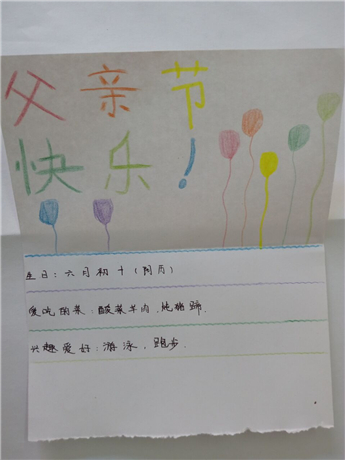 父亲节
快乐！
生日：六月初十（阴历）
爱吃的菜：酸菜羊肉，炖猪蹄.
兴趣爱好：游泳、跑步.